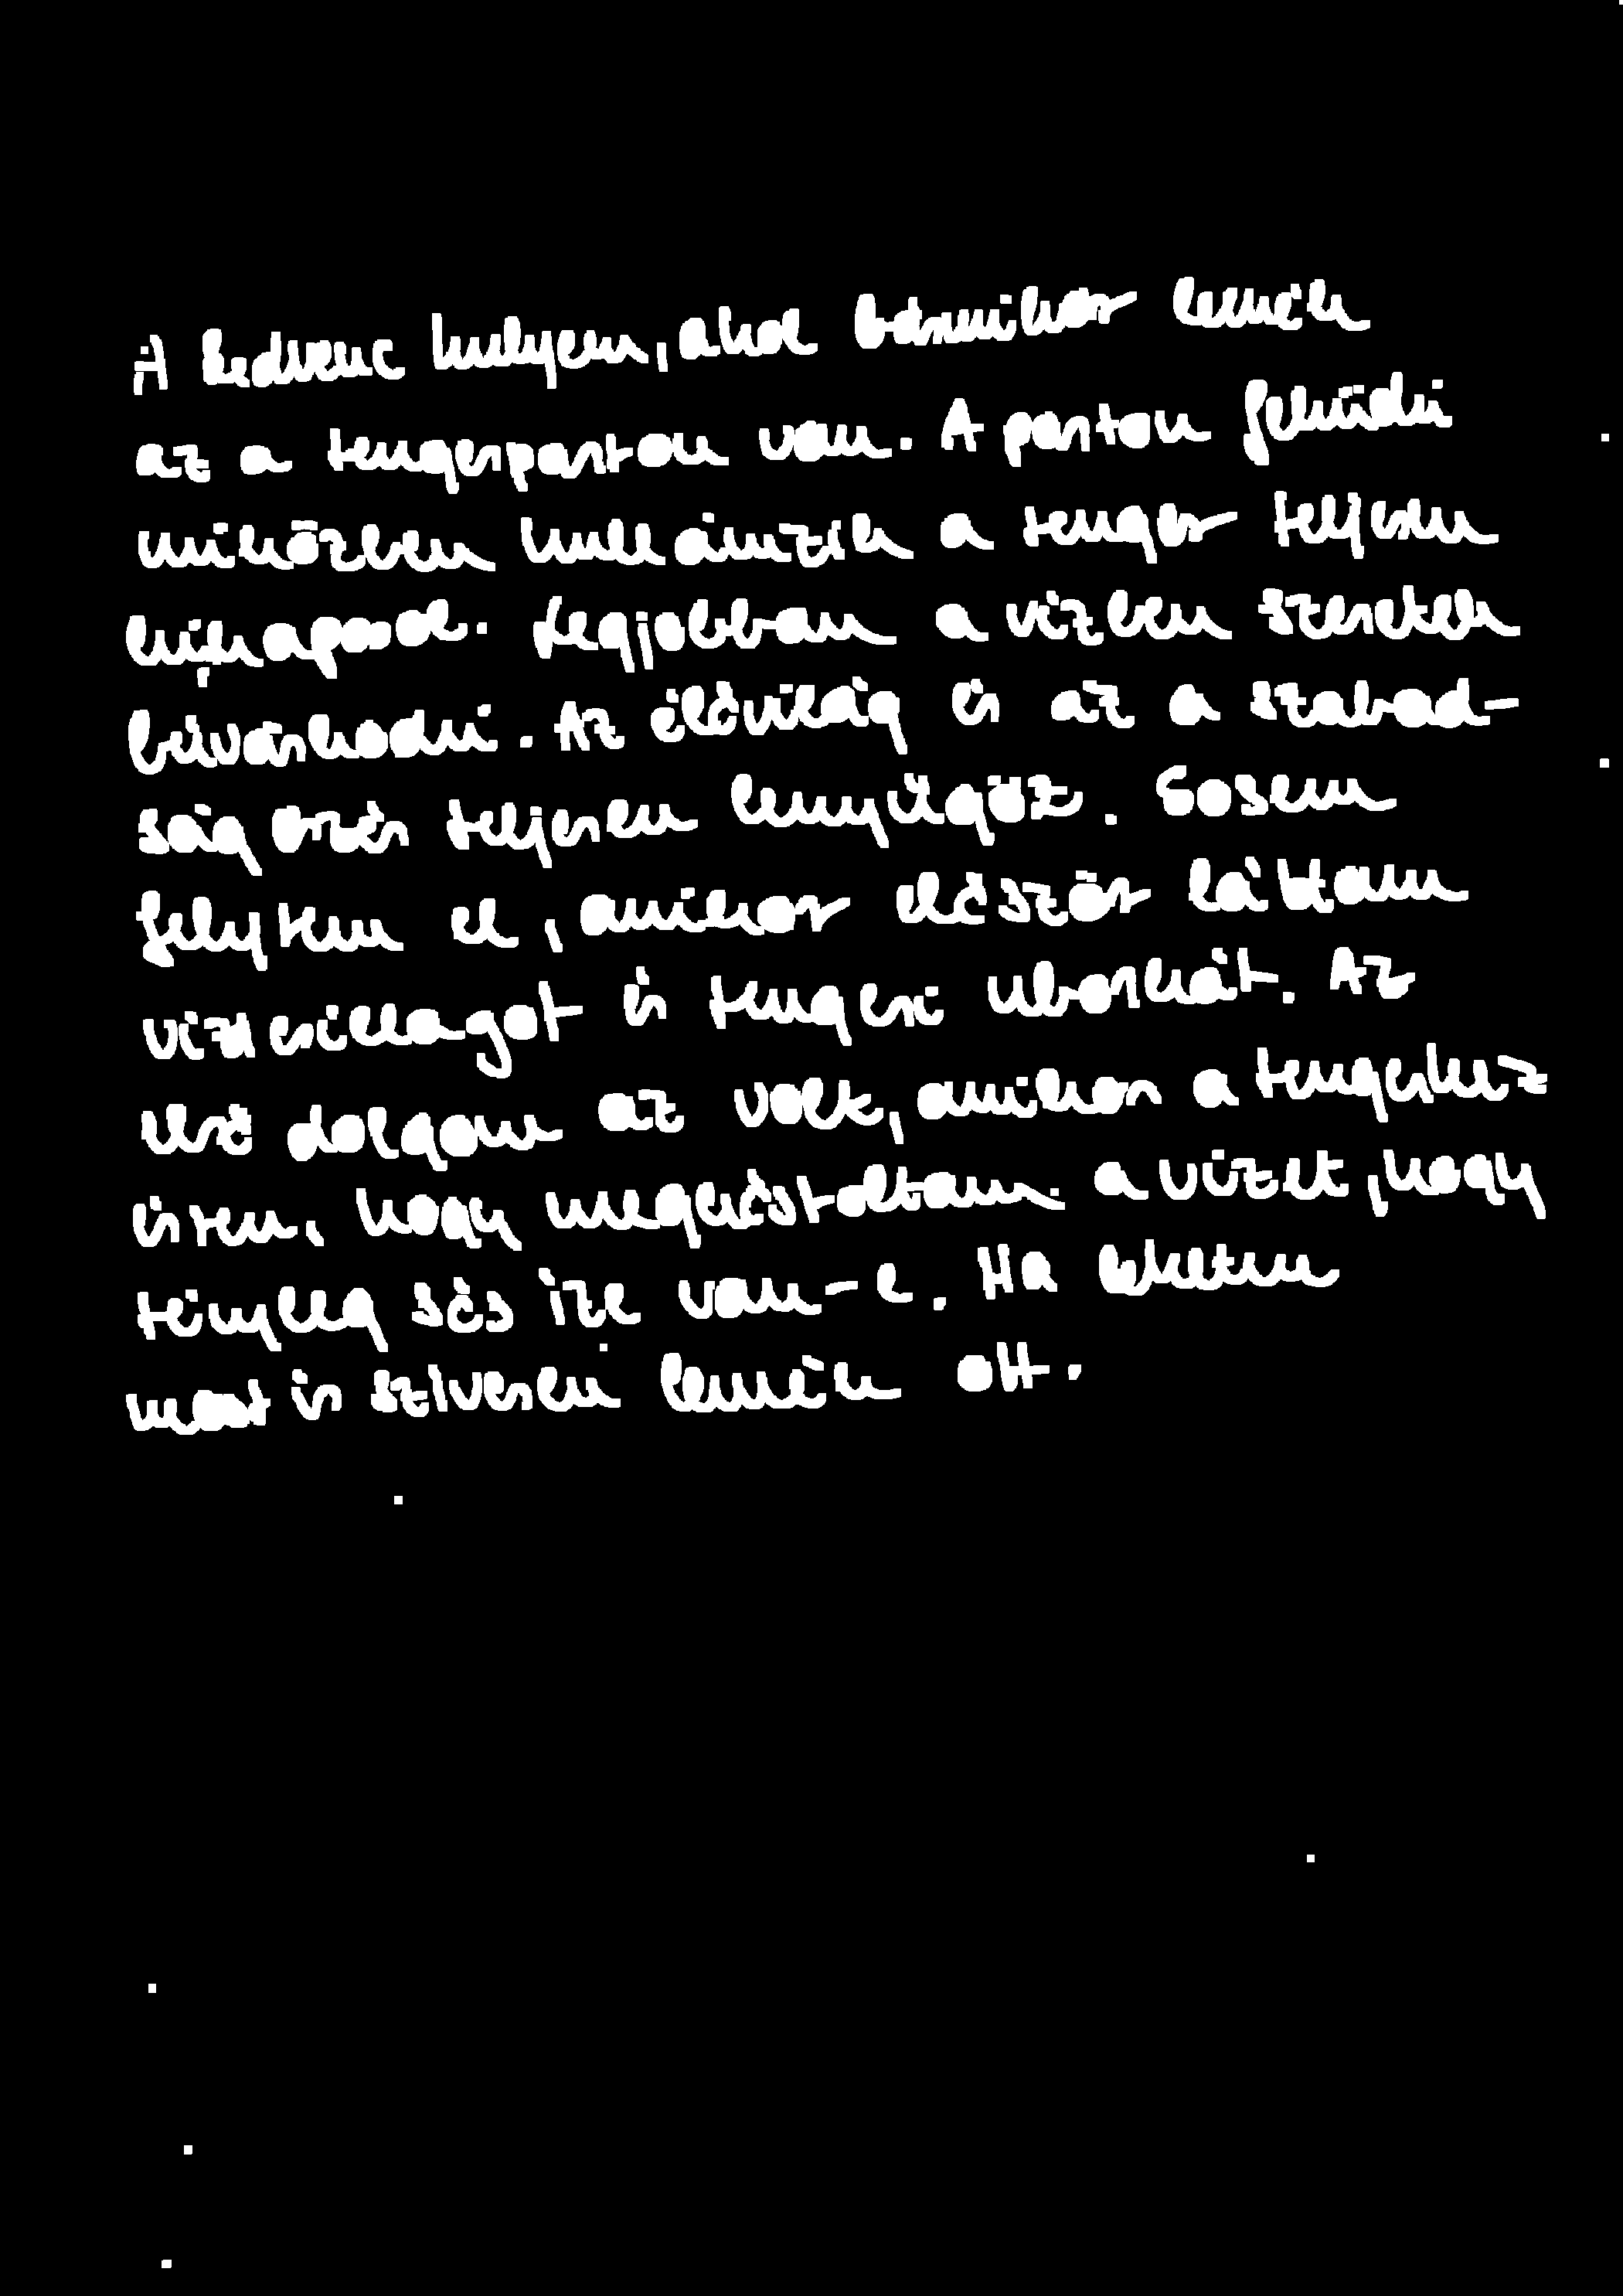 A kedvenc helyem, ahol bármikor lennék
az a tengerparton van. A parton feküdni
miközben hullámzik a tenger teljesen
kikapcsol. Legjobban a vízben szeretek
búvárkodni. Az élővilág és az a szabad-
ság érzés teljesen lenyűgöz. Sosem
felejtem el, amikor először láttam
vízicsillagot és tengeri uborkát. Az
első dolgom az volt, amikor a tengerhez
értem, hogy megkóstoltam a vizet, hogy
tényleg sós íze van-e. Ha lehetne
most is szívesen lennék ott.